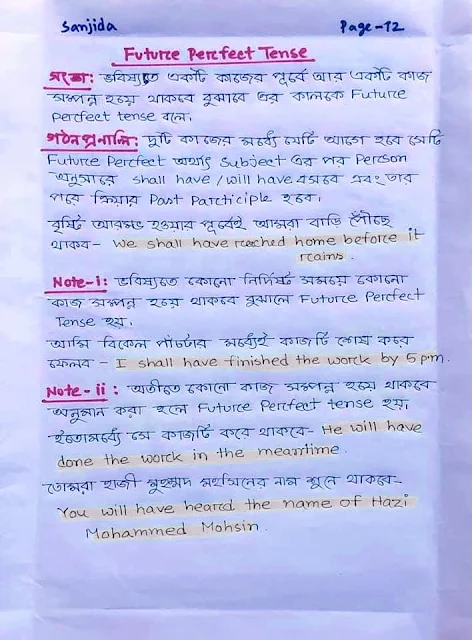 Sanjida Page-12
Future Perfect Tense
সংজ্ঞা: ভবিষ্যতে একটি কাজের পূর্বে আর একটি কাজ
সম্পন্ন হয়ে থাকবে বুঝাবে এর কালকে Future
perfect tense বলে।
গঠনপ্রনালি: দুটি কাজের মধ্যে যেটি আগে হবে সেটি
Future Perfect অর্থাৎ Subject এর পর Person
অনুসারে shall have / will have বসবে এবং তার
পরে ক্রিয়ার Past Participle হবে।
বৃষ্টি আরম্ভ হওয়ার পূর্বেই আমরা বাড়ি পৌঁছে
থাকব- We shall have reached home before it
rains.
Note-i: ভবিষ্যতে কোনো নির্দিষ্ট সময়ে কোনো
কাজ সম্পন্ন হয়ে থাকবে বুঝালে Future Perfect
Tense হয়।
আমি বিকেল পাঁচটার মধ্যেই কাজটি শেষ করে
ফেলব - I shall have finished the work by 5 pm.
Note-ii: অতীতে কোনো কাজ সম্পন্ন হয়ে থাকবে
অনুমান করা হলে Future Perfect tense হয়।
ইতোমধ্যে সে কাজটি করে থাকবে- He will have
done the work in the meantime.
তোমরা হাজী মুহম্মদ মহসিনের নাম শুনে থাকবে-
You will have heard the name of Hazi
Mohammed Mohsin.